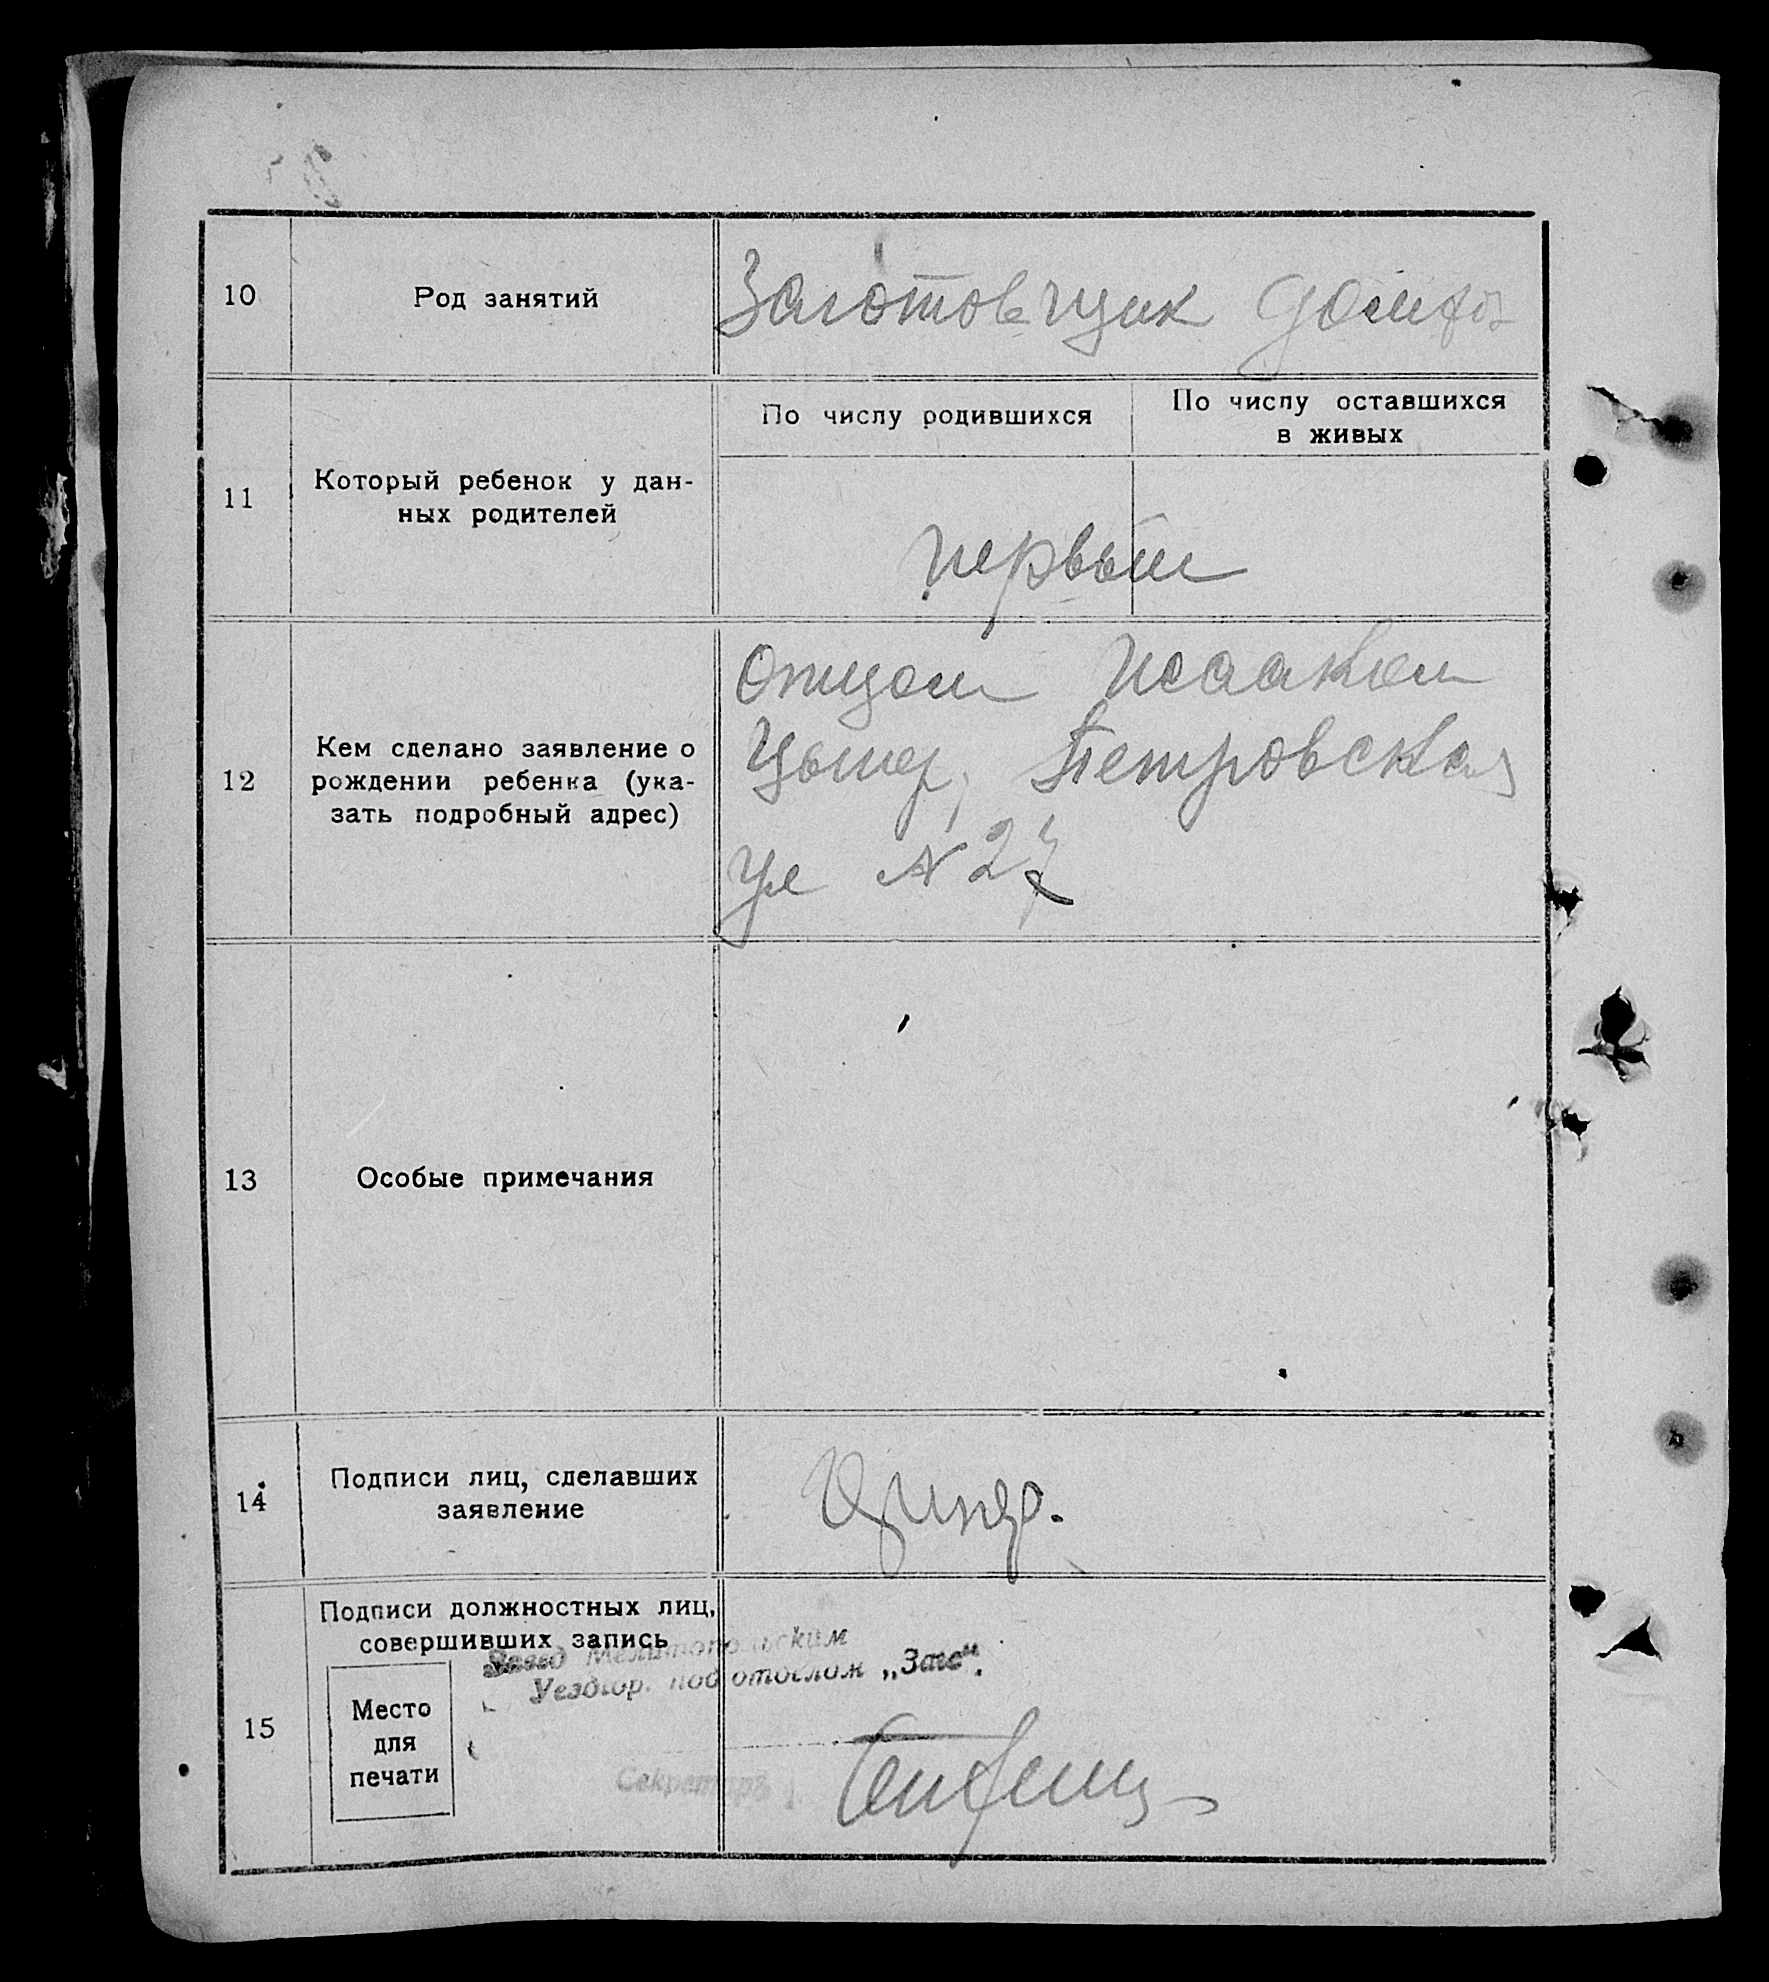 10
Род занятий
Заготовщик домхоз
11
Который ребенок у дан-
ных родителей
По числу родившихся
По числу оставшихся
в живых
первый
12
Кем сделано заявление о
рождении ребенка (ука-
зать подробный адрес)
Отцом Исааком
Петровская
ул N 27
13
Особые примечания
14
Подписи лиц, сделавших
заявление
15
Подписи должностных лиц,
совершивших запись
Место
для
печати
Завед Мелитопольским
Уездгор. под отделом „Загс“.
Секретарь